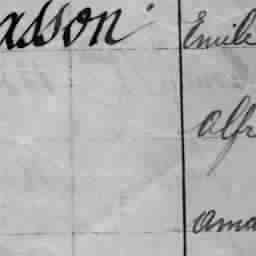 asson Emile
Alfr
Ama